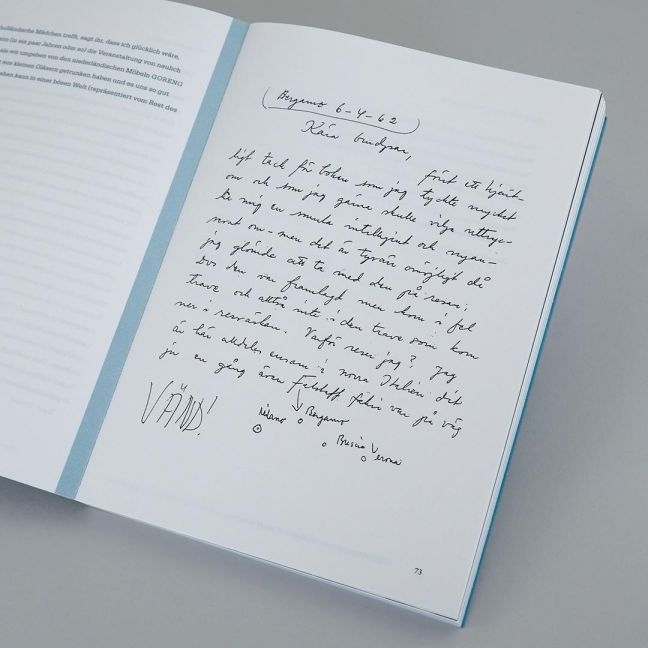 holländische Mädchen trefft, sagt ihr, dass ich glücklich wäre,
(in ein paar Jahren oder so) die Veranstaltung von neulich
als wir umgeben von den niederländischen Möbeln GORENG
aus kleinen Gläsern getrunken haben und es uns so gut
gehen kann in einer bösen Welt (repräsentiert vom Rest des
Bergamo 6-4-62
Kära
först ett hjärt-
ligt tack för boken som jag tyckte mycket
om och som jag gärna skulle vilja uttryc-
ka mig en smula intelligent och nyan-
serat om - men det är tyvärr omöjligt då
jag glömde att ta med den på resan;
dvs den var framlagd men kom i fel
trave och alltså inte i den trave som kom
ner i resväskan. Varför reser jag? Jag
är här alldeles ensam i norra Italien dit
ju en gång även Falstaff, fakir var på väg
VÄND!
Milano
Bergamo
Brescia
Verona
73